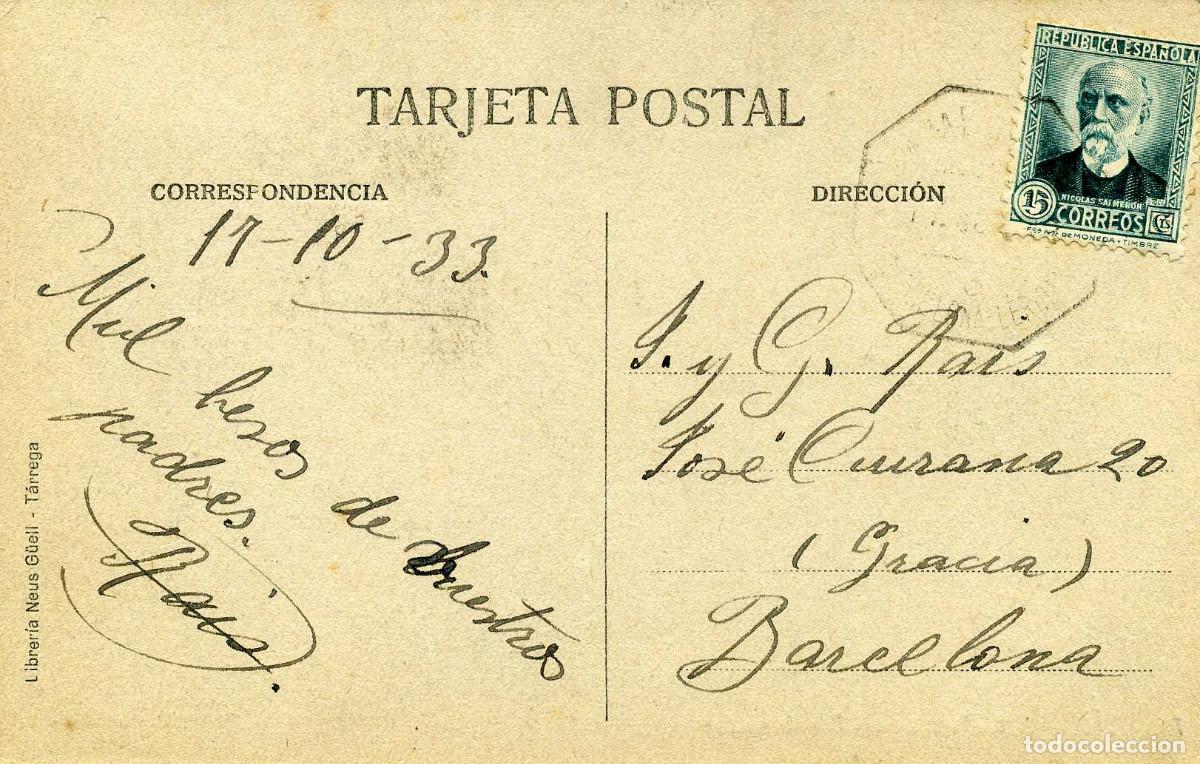 TARJETA POSTAL
CORRESPONDENCIA
17-10-33.
Mil besos de vuestros
padres.
Rais.
Librería Neus Güell - Tárrega
DIRECCIÓN
REPUBLICA ESPAÑOLA
NICOLAS SALMERON
15 CORREOS CTS
FCA NAL DE MONEDA Y TIMBRE
J. y G. Rais
José Cuurana 20
(Gracia)
Barcelona
todocoleccion